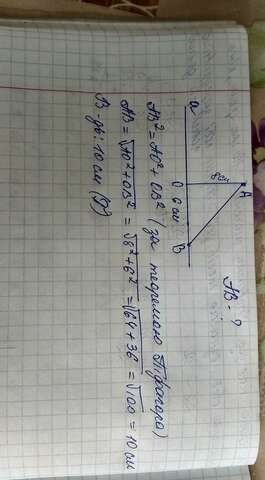 a
8см
A
O
6 см
B
AB - ?
AB² = AO² + OB² (за теоремою Піфагора)
AB = √AO² + OB² = √8² + 6² = √64 + 36 = √100 = 10 см
В-дь: 10 см